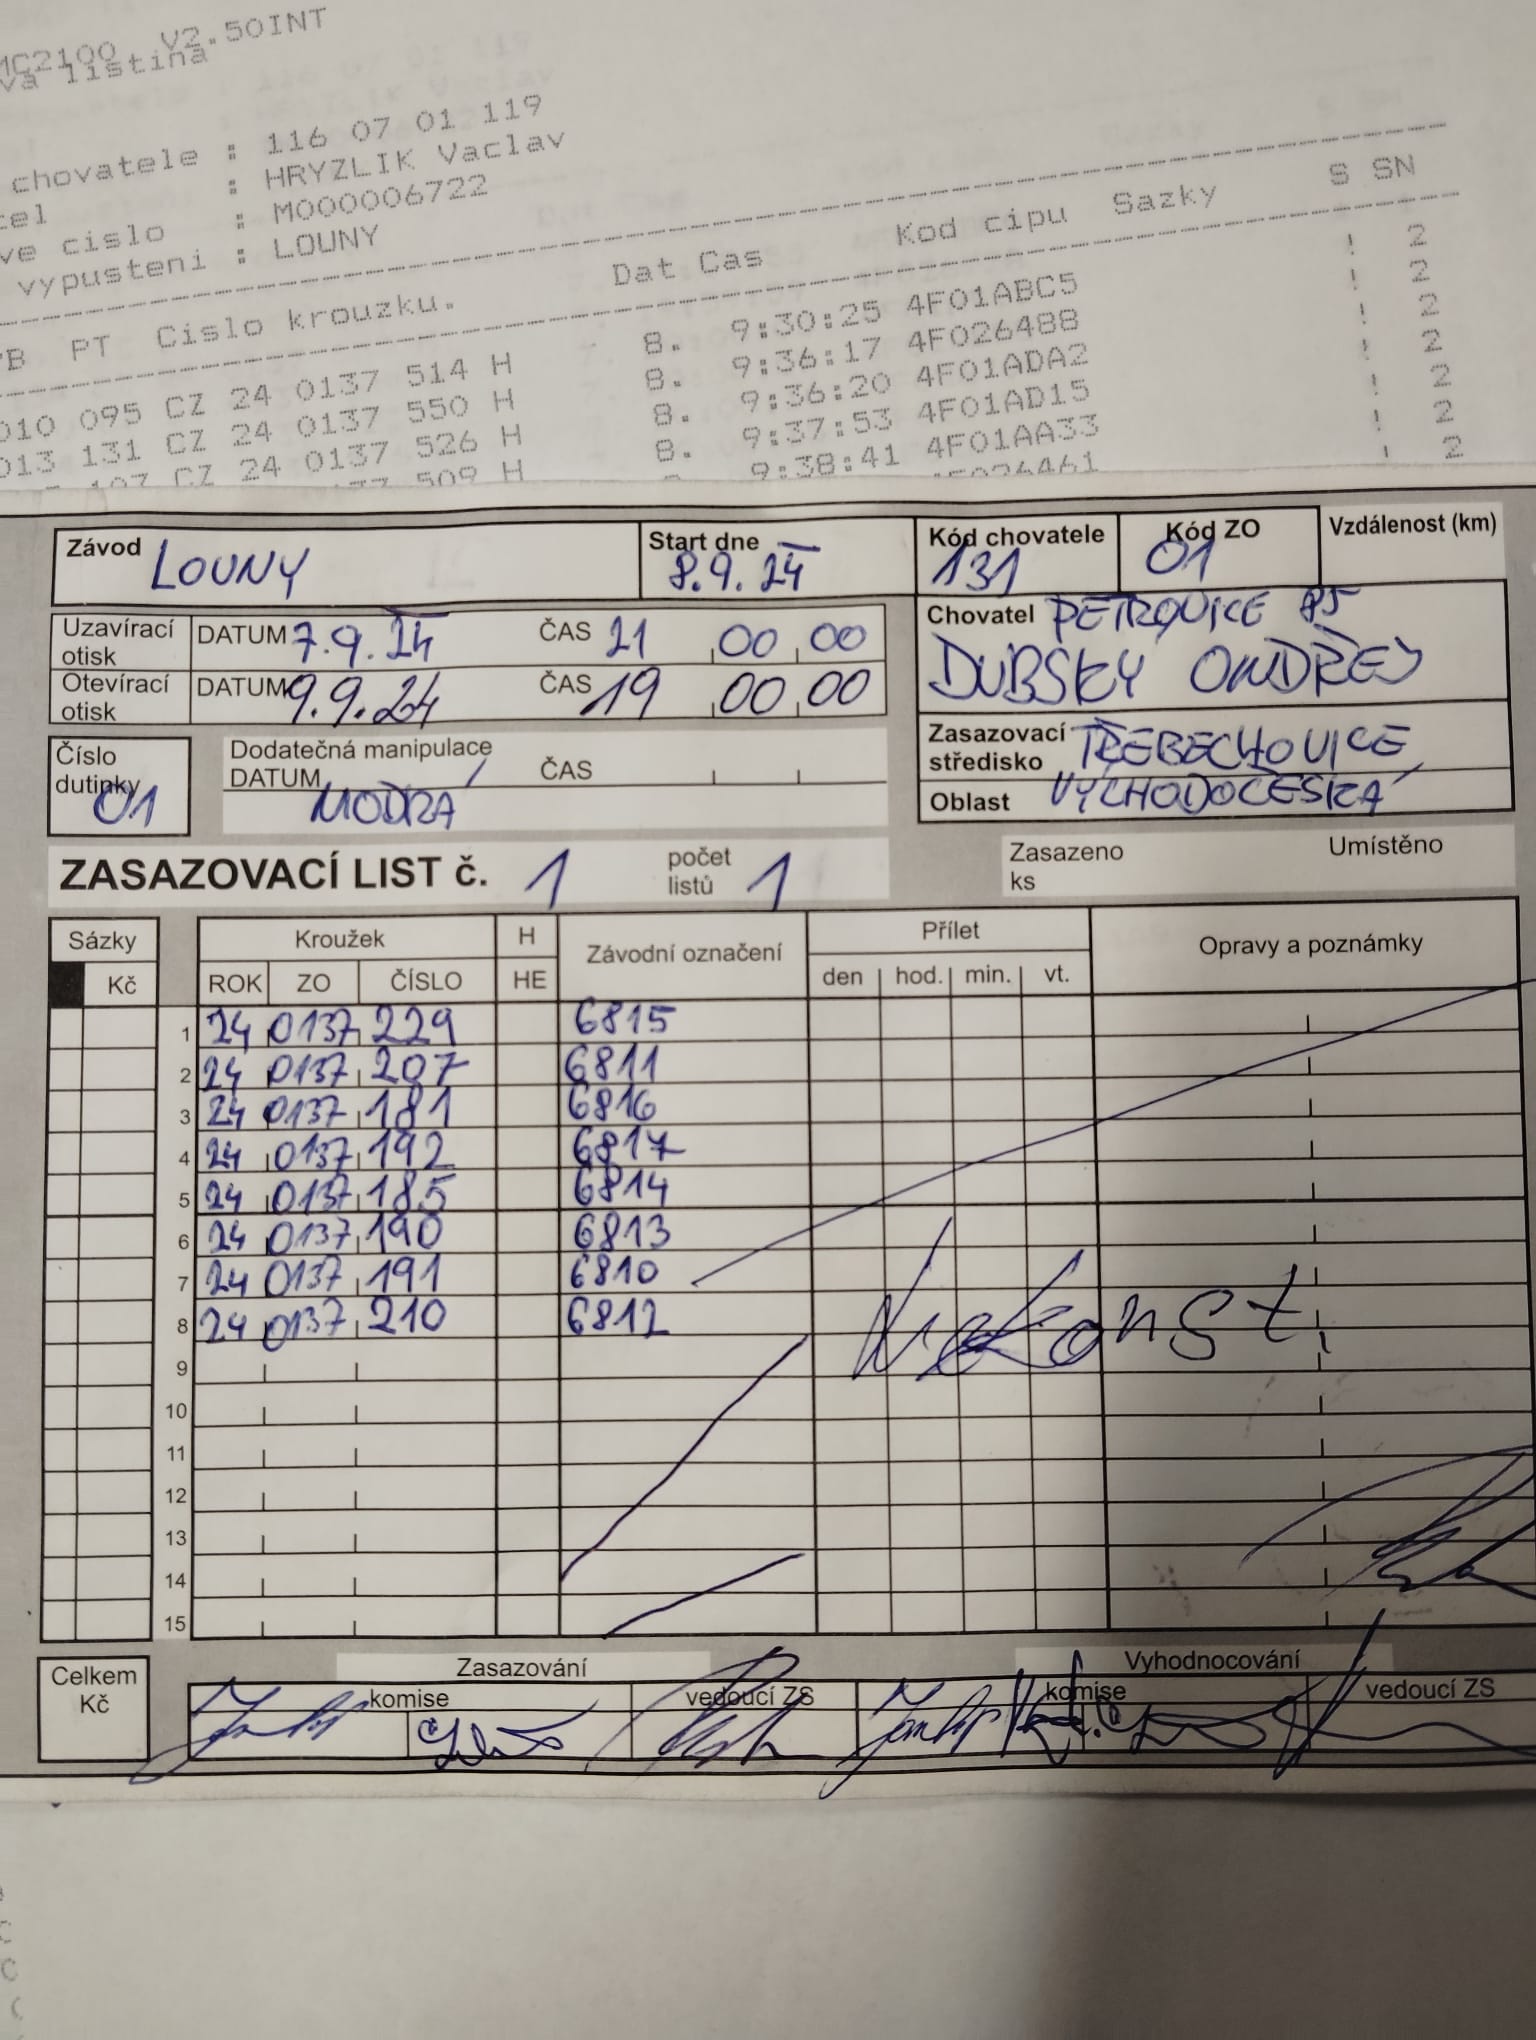 MC2100 V2.50INT
va listina
chovatele : 116 07 01 119
tel : HRYZLIK Vaclav
ve cislo : M000006722
vypusteni : LOUNY
PT Cislo krouzku. Dat Cas Kod cipu Sazky S SN
010 095 CZ 24 0137 514 H 8. 9:30:25 4F01ABC5 ! 2
013 131 CZ 24 0137 550 H 8. 9:36:17 4F026488 ! 2
107 CZ 24 0137 526 H 8. 9:36:20 4F01ADA2 ! 2
509 H 8. 9:37:53 4F01AD15 ! 2
9:38:41 4F01AA33 ! 2
! 2
! 2
Závod LOUNY Start dne 8.9.24 Kód chovatele 131 Kód ZO 01 Vzdálenost (km)
Uzavírací otisk DATUM 7.9.24 ČAS 21 00 00
Otevírací otisk DATUM 9.9.24 ČAS 19 00 00
Chovatel PETROVICE 85
DUBSKÝ ONDŘEJ
Zasazovací středisko TŘEBECHOVICE
Oblast VÝCHODOČESKÁ
Číslo dutinky 01
Dodatečná manipulace
DATUM ČAS
MODRÁ
ZASAZOVACÍ LIST č. 1 počet listů 1
Zasazeno ks Umístěno
Sázky Kroužek H Závodní označení Přílet Opravy a poznámky
Kč ROK ZO ČÍSLO HE den hod. min. vt.
1 24 0137 229 6815
2 24 0137 207 6811
3 24 0137 181 6816
4 24 0137 192 6817
5 24 0137 185 6814
6 24 0137 190 6813
7 24 0137 191 6810
8 24 0137 210 6812
9
10
11
12
13
14
15
Celkem Kč
Zasazování Vyhodnocování
komise vedoucí ZS komise vedoucí ZS